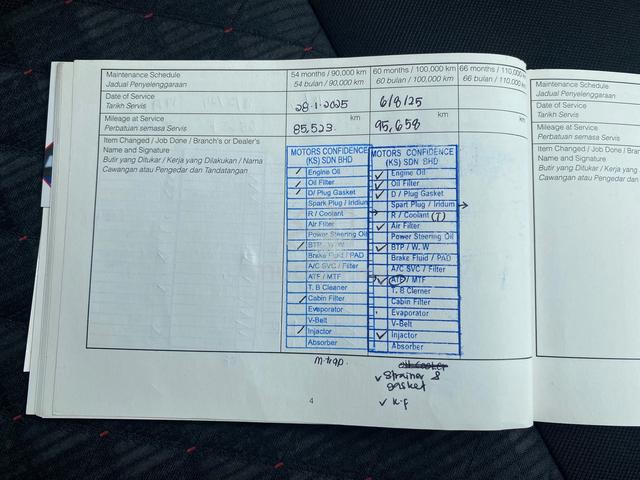 Maintenance Schedule
Jadual Penyelenggaraan
54 months / 90,000 km
54 bulan / 90,000 km
60 months / 100,000 km
60 bulan / 100,000 km
66 months / 110,000
66 bulan / 110,000
Date of Service
Tarikh Servis
28.1.2025
6/8/25
Mileage at Service
Perbatuan semasa Servis
85,523 km
95,658 km
km
Item Changed / Job Done / Branch's or Dealer's
Name and Signature
Butir yang Ditukar / Kerja yang Dilakukan / Nama
Cawangan atau Pengedar dan Tandatangan
MOTORS CONFIDENCE
(KS) SDN BHD
Engine Oil
Oil Filter
D/ Plug Gasket
Spark Plug / Iridium
R / Coolant
Air Filter
Power Steering Oil
BTP / W. W
Brake Fluid / PAD
A/C SVC / Filter
ATF / MTF
T. B Cleaner
Cabin Filter
Evaporator
V-Belt
Injactor
Absorber
MOTORS CONFIDENCE
(KS) SDN BHD
Engine Oil
Oil Filter
D / Plug Gasket
Spart Plug / Iridum
R / Coolant (T)
Air Filter
Power Steering Oil
BTP / W. W
Brake Fluid / PAD
A/C SVC / Filter
ATF / MTF
T. B Clerner
Cabin Filter
Evaporator
V-Belt
Injactor
Absorber
Strainer &
gasket
K.F
4
Maintenance Schedule
Jadual Penyelenggaraan
Date of Service
Tarikh Servis
Mileage at Service
Perbatuan semasa Servis
Item Changed / Job Done / Bran
Name and Signature
Butir yang Ditukar / Kerja yang
Cawangan atau Pengedar dan